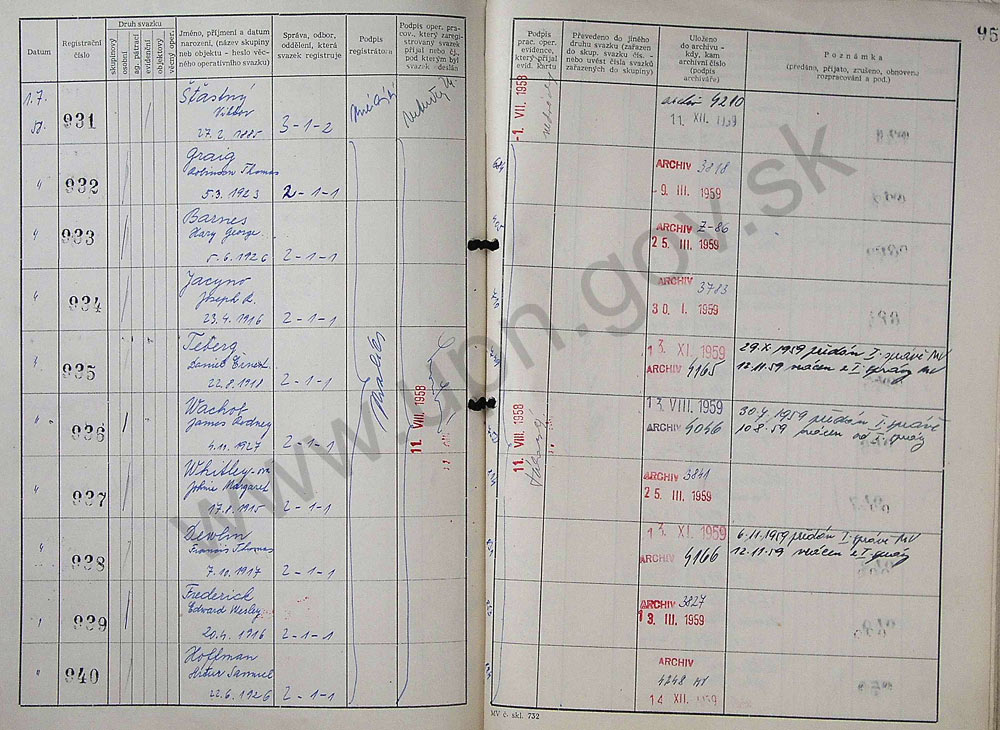 95
Datum
Registrační číslo
Druh svazku
skupinový
osobní
ag. pátrací
evidenční
objektový
věcný oper.
Jméno, příjmení a datum
narození, (název skupiny
neb objektu - heslo věc-
ného operativního svazku)
Správa, odbor,
oddělení, která
svazek registruje
Podpis
registrátora
Podpis oper. pra-
cov., který zaregi-
strovaný svazek
přijal nebo čj.
pod kterým byl
svazek deslán
Podpis
prac. oper.
evidence,
který přijal
evid. kartu
Převedeno do jiného
druhu svazku (zařazen
do skup. svazku čís. -
nebo uvést čísla svazků
zařazených do skupiny)
Uloženo
do archivu -
kdy, kam
archivní číslo
(podpis
archiváře)
Poznámka
(předáno, přijato, zrušeno, obnoveno
rozpracování a pod.)
1.7.
58.
931
Šťastný
Viktor
27.2. 1885
3-1-2
-1. VII. 1958
4210
11. XII. 1959
"
932
Graig
Robinson Thomas
5.3. 1923
2-1-1
ARCHIV 3818
9. III. 1959
"
933
Barnes
Hary George
5.6. 1926
2-1-1
ARCHIV Z-86
25. III. 1959
"
934
Jacyno
Joseph R.
23.4. 1916
2-1-1
ARCHIV 3783
30. I. 1959
"
935
Teberg
Daniel Ernest
22.8. 1918
2-1-1
13. XI. 1959
ARCHIV 4165
29.X. 1959 předán I. správě MV
12.11.59 vrácen z I. správy MV
"
936
Wachob
James Rodney
4.11. 1927
2-1-1
11. VIII. 1958
11. VIII. 1958
13. VIII. 1959
ARCHIV 4046
1959 předán I. správě
10.8.59 vrácen od I. správy
"
937
Whitley-ová
Johnie Margaret
17.8. 1915
2-1-1
ARCHIV 3841
25. III. 1959
"
938
Dewlin
Francis Thomas
7.10. 1917
2-1-1
13. XI. 1959
ARCHIV 4166
6.11.1959 předán I. správě MV
12.11.59 vrácen z I. správy
"
939
Frederick
Edward Wesley
20.4. 1916
2-1-1
ARCHIV 3827
13. III. 1959
"
940
Hoffman
Artur Samuel
22.6. 1926
2-1-1
ARCHIV
4248 MV
14. XII. 1959
MV č. skl. 732
www.upn.gov.sk